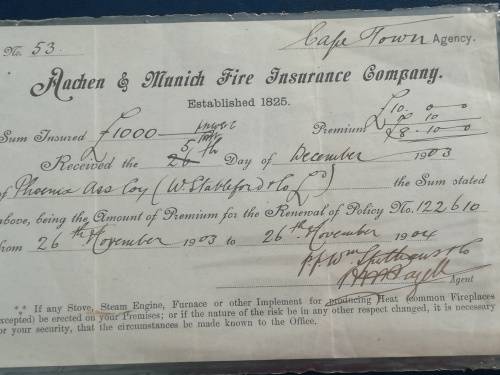 No. 53. Cape Town Agency.
Aachen & Munich Fire Insurance Company.
Established 1825.
Sum Insured £1000 Premium £10 0 0
£8 - 10 - 0
Received the 5th Day of December 1903
of Phoenix Ass Coy (W. Stableford & Co Ld) the Sum stated
above, being the Amount of Premium for the Renewal of Policy No. 122610
from 26th November 1903 to 26th November 1904
p.p. Wm
Agent
** If any Stove, Steam Engine, Furnace or other Implement for producing Heat (common Fireplaces
excepted) be erected on your Premises; or if the nature of the risk be in any other respect changed, it is necessary
for your security, that the circumstances be made known to the Office.